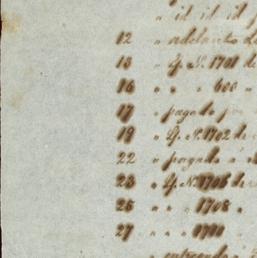 " id id id
12 " adelanto
13 " Lj. N. 1701 de
16 " " " 600 "
17 " pagado por
19 " Lj. N. 1702 de
22 " pagado a
23 " Lj. N. 1706 de
26 " " " 1708 "
27 " " " 1710 "
" entregado